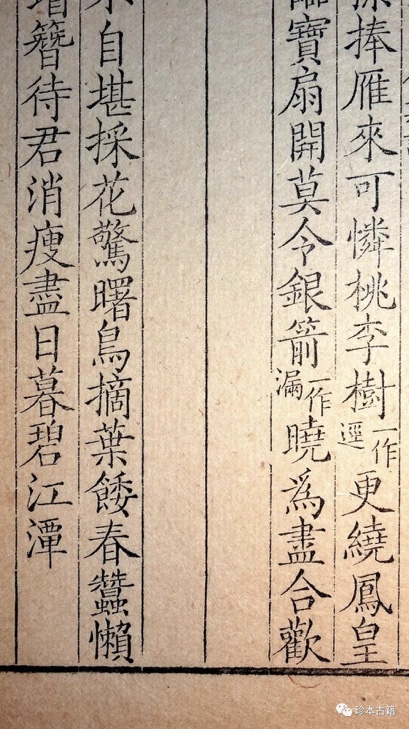 捧雁來可憐桃李樹一作逕更繞鳳皇
寶扇開莫令銀箭一作漏曉爲盡合歡
自堪採花驚曙鳥摘葉餧春蠶懶
簪待君消瘦盡日暮碧江潭
珍本古籍